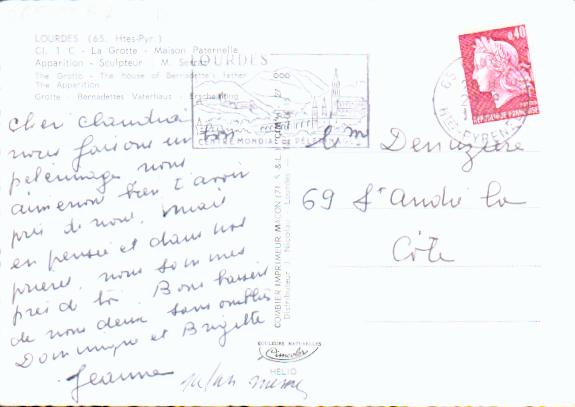 LOURDES (65. Htes-Pyr.)
Cl. 1 C - La Grotte - Maison Paternelle
Apparition - Sculpteur M.
The Grotto - The house of Bernadette's father
The Apparition
Grotte - Bernadettes Vaterhaus - Erscheinung
LOURDES
CENTRE MONDIAL DE PELERINAGE
65
Htes PYRENEES
0,40
REPUBLIQUE FRANCAISE
nous faisons un bon
pelerinage nous
aimerions bien t'avoir
près de nous. Mais
en pensée et dans nos
prieres, nous sommes
près de toi. Bons baisers
de nous deux sans oublier
Dominique et Brigitte
Jeanne
69 St André la
Côte
COMBIER IMPRIMEUR MACON
Distributeur J. Nicolas - Lourdes
COULEURS NATURELLES
Cimcolor
HELIO